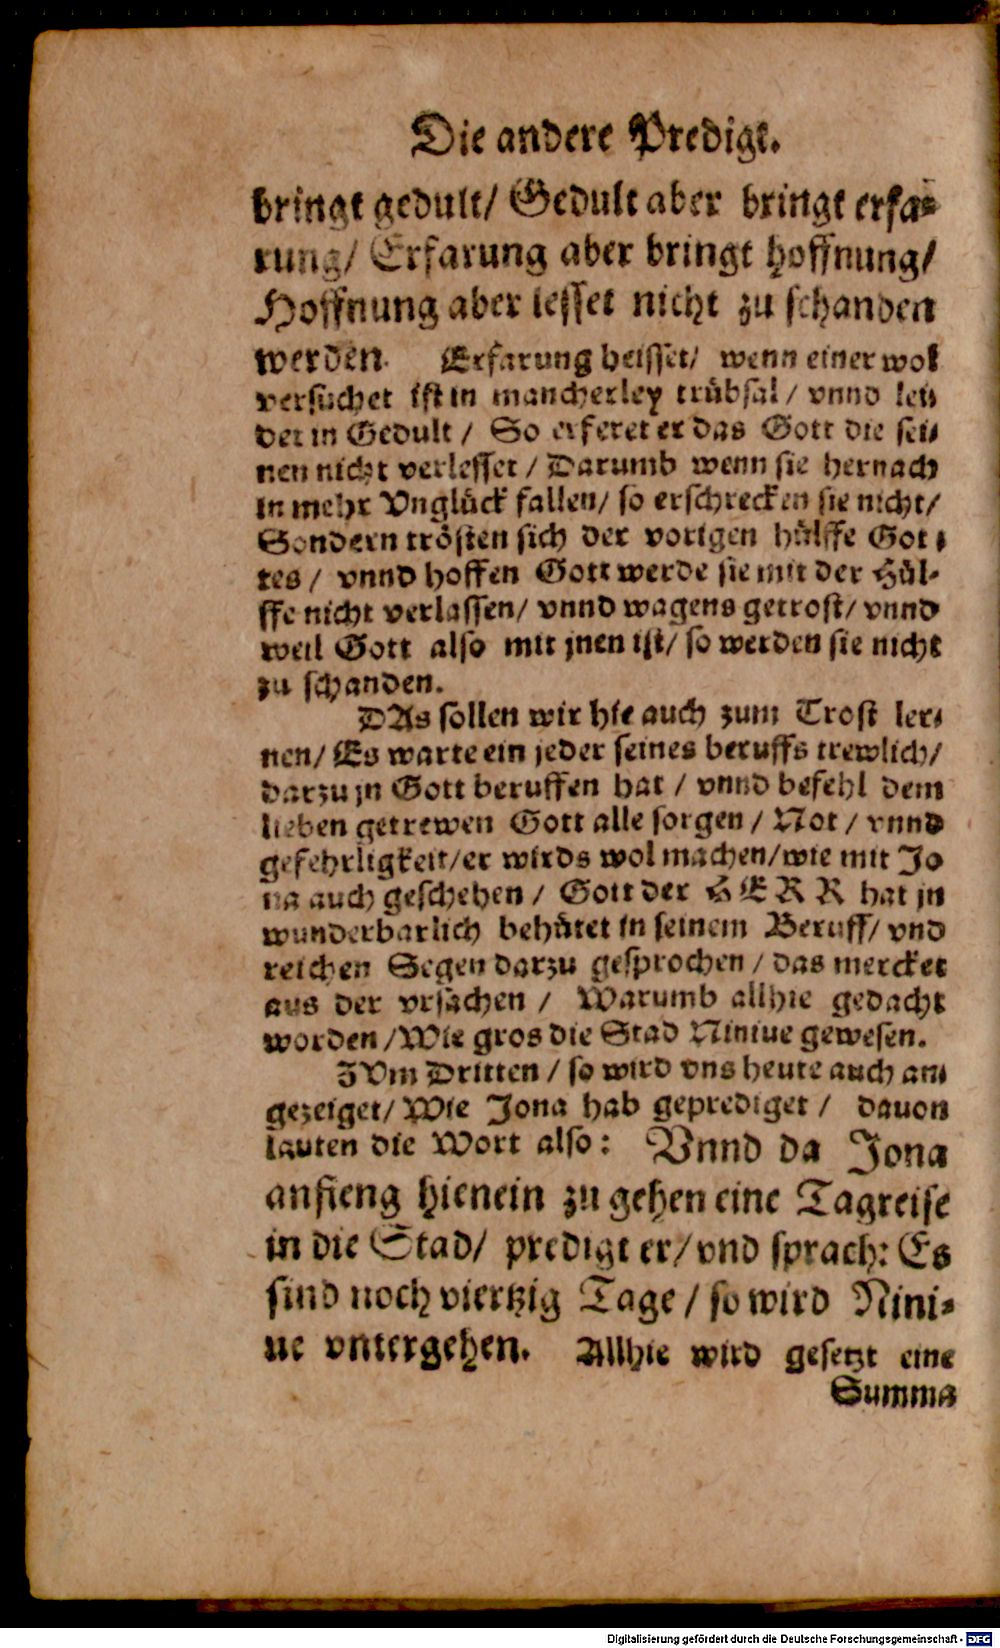 Die andere Predigt.
bringt gedult/ Gedult aber bringt erfa-
rung/ Erfarung aber bringt hoffnung/
Hoffnung aber lesset nicht zu schanden
werden. Erfarung heisset/ wenn einer wol
versuchet ist in mancherley trübsal / vnnd lei-
det in Gedult / So erferet er das Gott die sei-
nen nicht verlesset / Darumb wenn sie hernach
in mehr Vnglück fallen/ so erschrecken sie nicht/
Sondern trösten sich der vorigen hülffe Got-
tes / vnnd hoffen Gott werde sie mit der Hül-
ffe nicht verlassen/ vnnd wagens getrost/ vnnd
weil Gott also mit jnen ist/ so werden sie nicht
zu schanden.
DAs sollen wir hie auch zum Trost ler-
nen/ Es warte ein jeder seines beruffs trewlich/
darzu jn Gott beruffen hat / vnnd befehl dem
lieben getrewen Gott alle sorgen / Not / vnnd
gefehrligkeit/er wirds wol machen/wie mit Jo
na auch geschehen / Gott der HERR hat jn
wunderbarlich behütet in seinem Beruff/ vnd
reichen Segen darzu gesprochen / das mercket
aus der vrsachen / Warumb allhie gedacht
worden /Wie gros die Stad Niniue gewesen.
ZVm Dritten / so wird vns heute auch an-
gezeiget/ Wie Jona hab geprediget / dauon
lauten die Wort also: Vnnd da Jona
anfieng hienein zu gehen eine Tagreise
in die Stad/ predigt er/ vnd sprach: Es
sind noch viertzig Tage / so wird Nini-
ue vntergehen. Allhie wird gesetzt eine
Summa
Digitalisierung gefördert durch die Deutsche Forschungsgemeinschaft - DFG